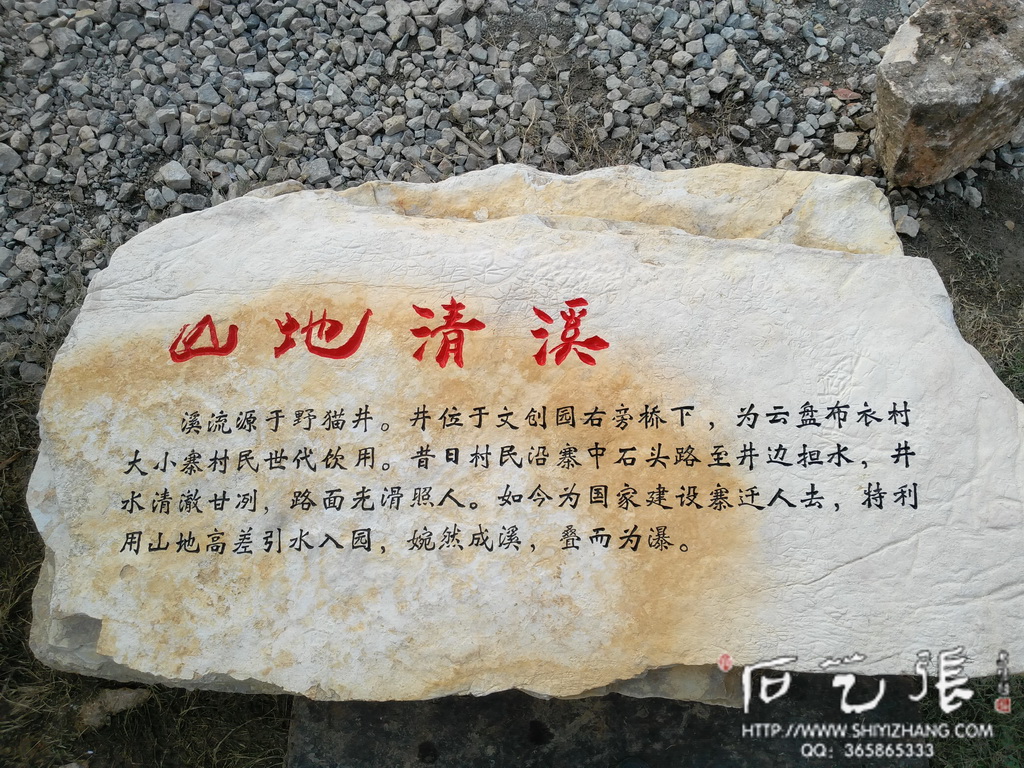 山地清溪
溪流源于野猫井。井位于文创园右旁桥下，为云盘布衣村
大小寨村民世代饮用。昔日村民沿寨中石头路至井边担水，井
水清澈甘冽，路面光滑照人。如今为国家建设寨迁人去，特利
用山地高差引水入园，婉然成溪，叠而为瀑。
石艺張
HTTP://WWW.SHIYIZHANG.COM
QQ: 365865333